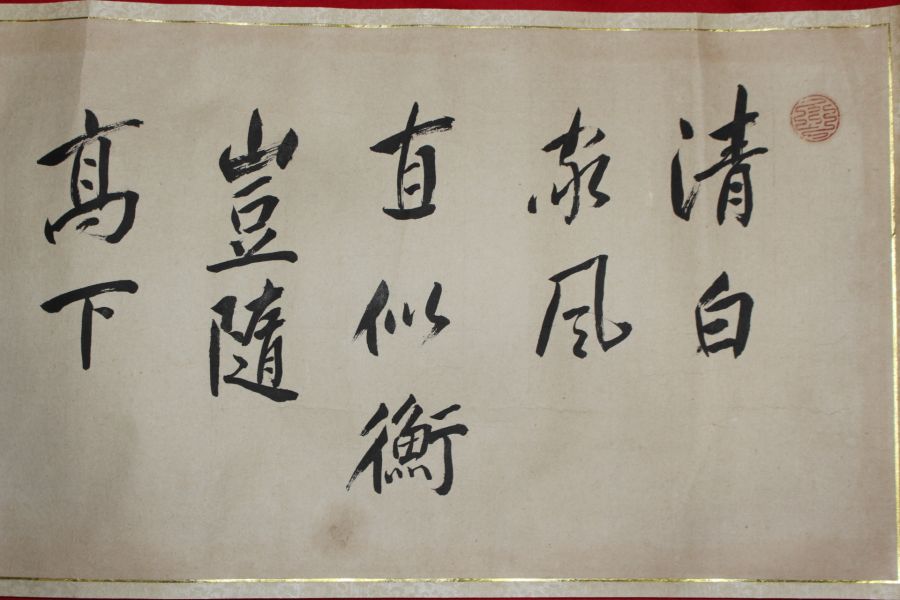 清白
家風
直似衡
豈隨
髙下